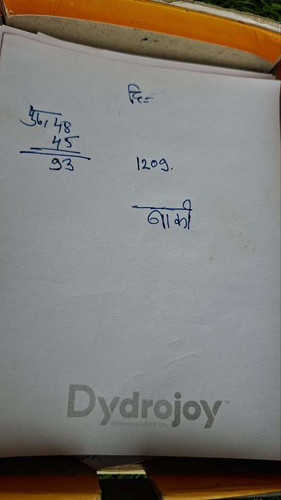 दि=
48
45
93
1209.
बाकी
Dydrojoy™